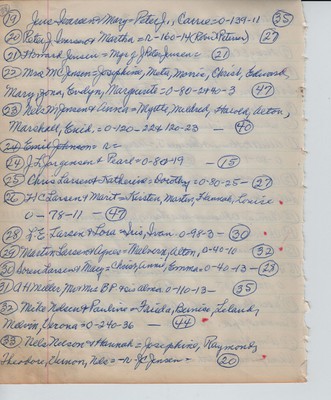 (19) Jens Iversen & Mary = Peter J., Carrie = 0-139-11 (35)
(20) Peter J. Iversen & Martha = R-160-14 (27)
(21) Howard Jensen = (21)
(22) Mrs M.C. Jensen = Josephine, Meta, Minnie, Christ, Edward,
Mary, Zona, Evelyn, Marguerite = 0-80-2490-3 (47)
(23) Nels M. Jensen & Anna = Myrtle, Mildred, Harold, Alton,
Marshall, Enid. = 0-120-22 & 120-23 - (40)
(24) Emil Johnson = R =
(24) J.L. Jorgensen & Pearl = 0-80-19 - (15)
(25) Chris Larsen & Katherine = Dorothy = 0-80-25 - (27)
(26) H.C. Larsen & Marit = Kirsten, Martin, Hannah, Louise
0-78-11 - (47)
(28) L.E. Larsen & Lou = Iris, Ivan 0-98-3 - (30)
(29) Martin Larsen & Agnes = Malvern, Alton, 0-40-10 (32)
(30) Soren Larsen & Mary = Christ, Anni, Emma = 0-40-13 - (28)
(31) A H Miller, Mr & Mrs 0-110-13 - (35)
(32) Mike Nelsen & Pauline = Frieda, Bernice, Leland,
Melvin, Verona = 0-240-36 - (44)
(33) Nels Nelson & Hannah = Josephine, Raymond,
Theodore, Vernon, Nels = R- J.C. Jensen = (20)